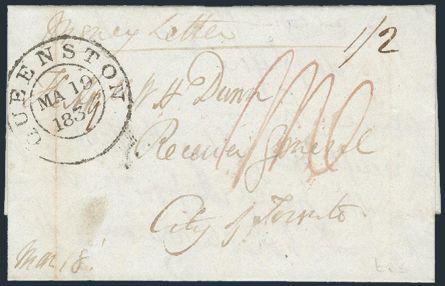 Money Letter
1/2
QUEENSTON
MA 19
183
J H Dunn
Receiver General
City of Toronto
Mar 18